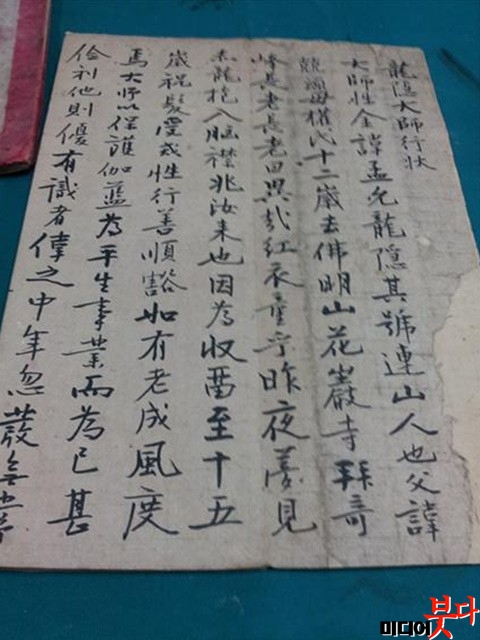 龍隱大師行狀
大師性金諱孟允龍隱其號連山人也父諱
兢瑞母權氏十二歲去佛明山花巖寺拜奇
峰長老長老曰異哉紅衣童乎昨夜夢見
赤龍抱入胸襟兆汝来也因為収畜至十五
歲祝髮受戒性行善順豁如有老成風度
焉大师以保護伽藍為平生事業而為己甚
儉利他則優有識者偉之中年忽發
미디어붓다